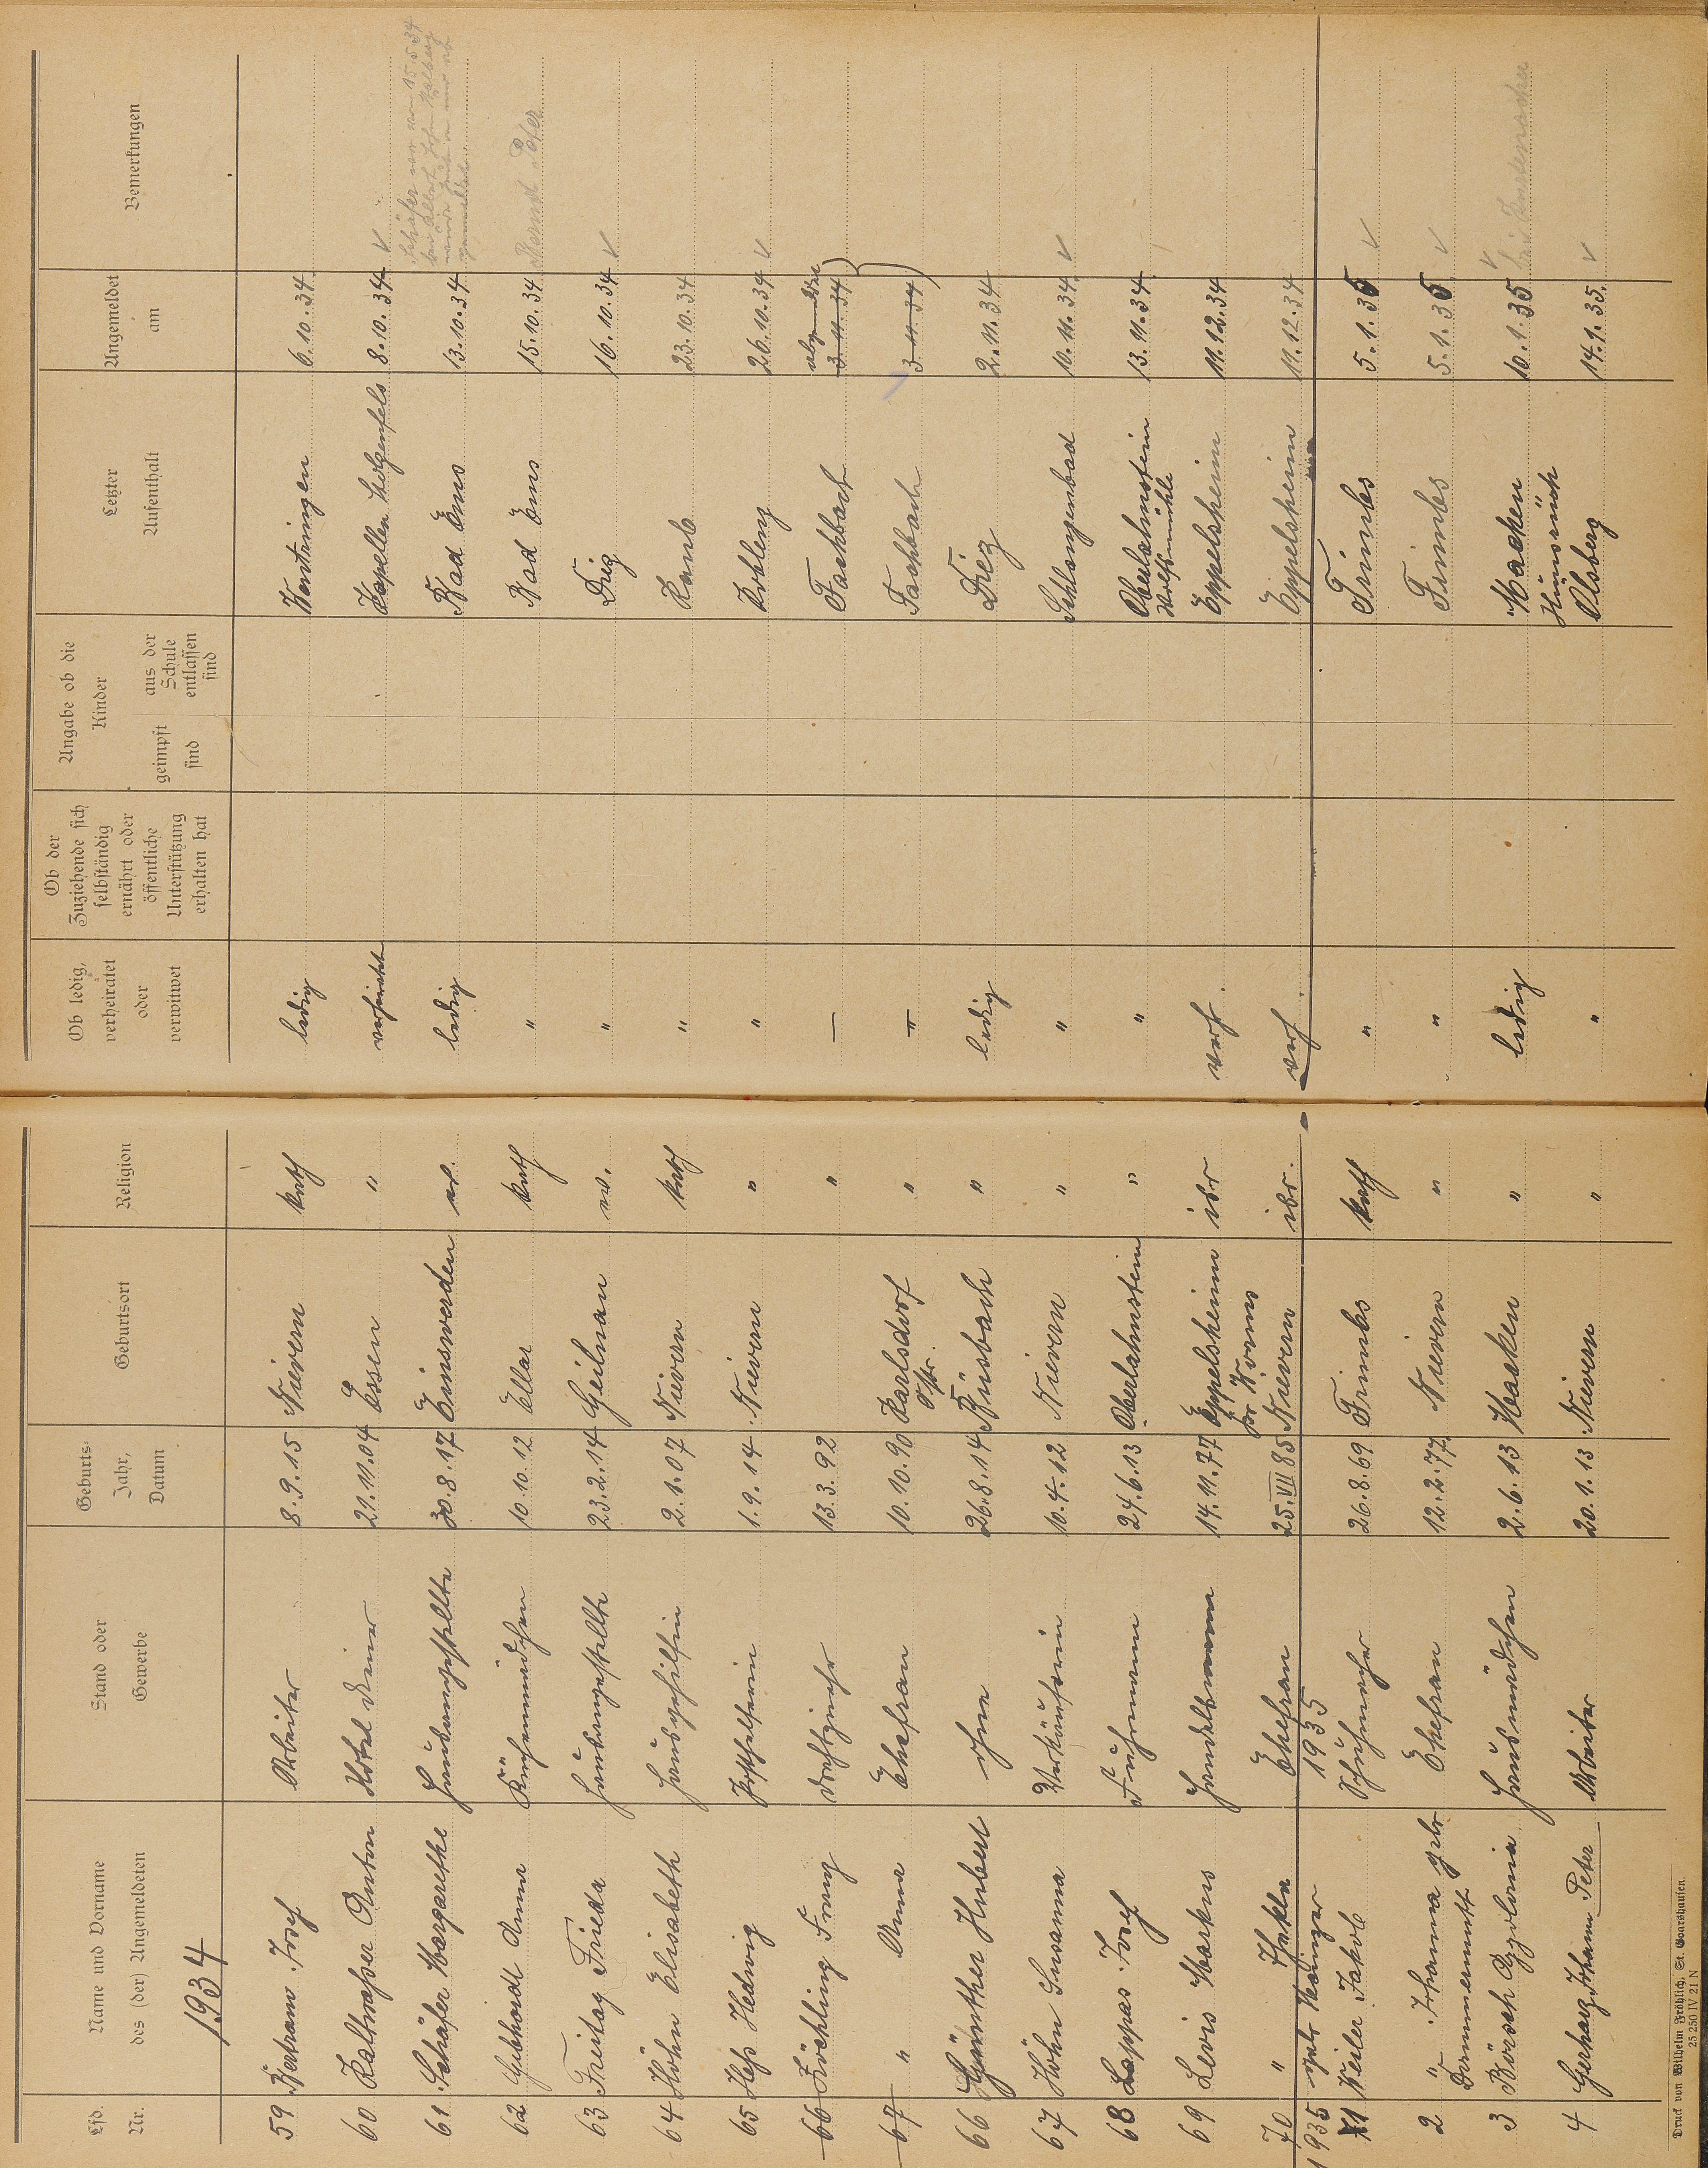 Lfd. Nr. Name und Vorname des (der) Angemeldeten Stand oder Gewerbe Geburts-Jahr, Datum Geburtsort Religion Ob ledig, verheiratet oder verwitwet Ob der Zuziehende sich selbständig ernährt oder öffentliche Unterstützung erhalten hat Angabe ob die Kinder geimpft sind aus der Schule entlassen sind Letzter Aufenthalt Angemeldet am Bemerkungen
1934
59 Bertram Josef Arbeiter 8.9.15 Nievern kath ledig 6.10.34
60 Anton Hotel 21.11.04 Essen " verheiratet Kapellen Stolzenfels 8.10.34 V
61 Schäfer Margarethe Hausangestellte 30.8.17 Einswarden ev. ledig Bad Ems 13.10.34 Schäfer war vom 15.5.34
62 Gebhardt Anna Küchenmädchen 10.10.12 Ellar kath " Bad Ems 15.10.34 Peter
63 Freitag Frieda Hausangestellte 23.2.14 Geilnau ev. " Diez 16.10.34 V
64 Höhn Elisabeth Hausgehilfin 2.1.07 Nievern kath " Kaub 23.10.34
65 Heß Hedwig 1.9.14 Nievern " " Koblenz 26.10.34 V
66 Fröhling Franz Drahtzieher 13.3.92 " — Fachbach 3.11.34
67 " Anna Ehefrau 10.10.90 Karlsdorf " " Fachbach 3.11.34
66 Günther Hubert ohne 26.8.14 Küsbach " ledig Diez 2.11.34
67 Höhn Susanna Verkäuferin 10.4.12 Nievern " " Schlangenbad 10.11.34 V
68 Lappas Josef Fuhrmann 24.6.13 Oberlahnstein " " Oberlahnstein Wolfsmühle 13.11.34
69 Levis Markus Handelsmann 14.11.77 Eppelsheim Kr Worms isr verh. Eppelsheim 11.12.34
70 " Thekla Ehefrau 25.VII 85 Nievern isr. verh. Eppelsheim 11.12.34
1935 geb. 1935
1 Weiler Jakob Schuhmacher 26.8.69 Frimbs kath " Frimbs 5.1.35 V
2 " Johanna geb. Ehefrau 12.2.77. Nievern " " Frimbs 5.1.35 V
Dammermuth
3 Börsch Apolonia Hausmädchen 2.6.13 Macken " ledig Macken Hunsrück 10.1.35 V
4 Gerharz Johann Peter Arbeiter 20.1.13 Nievern " " Olsberg 14.1.35. V
Druck von Wilhelm Fröhlich, St. Goarshausen.
25 250 IV 21 N